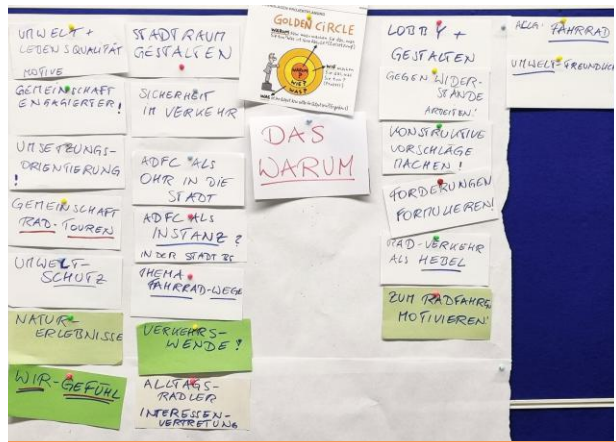 UMWELT +
LEBENSQUALITÄT
MOTIVE
GEMEINSCHAFT
ENGAGIERTER!
UMSETZUNGS-
ORIENTIERUNG
!
GEMEINSCHAFT
RAD-TOUREN
UMWELT-
SCHUTZ
NATUR-
ERLEBNISSE
WIR-GEFÜHL
STADTRAUM
GESTALTEN
SICHERHEIT
IM VERKEHR
ADFC ALS
OHR IN DIE
STADT
ADFC ALS
INSTANZ?
IN DER STADT BS
THEMA
FAHRRAD-WEGE
VERKEHRS-
WENDE!
ALLTAGS-
RADLER
INTERESSEN-
VERTRETUNG
GOLDEN CIRCLE
WARUM
WIE?
WAS?
DAS
WARUM
LOBBY +
GESTALTEN
GEGEN WIDER-
STÄNDE
ARBEITEN!
KONSTRUKTIVE
VORSCHLÄGE
MACHEN!
FORDERUNGEN
FORMULIEREN!
RAD-VERKEHR
ALS HEBEL
ZUM RADFAHREN
MOTIVIEREN!
FAHRRAD
UMWELT-FREUNDLICH